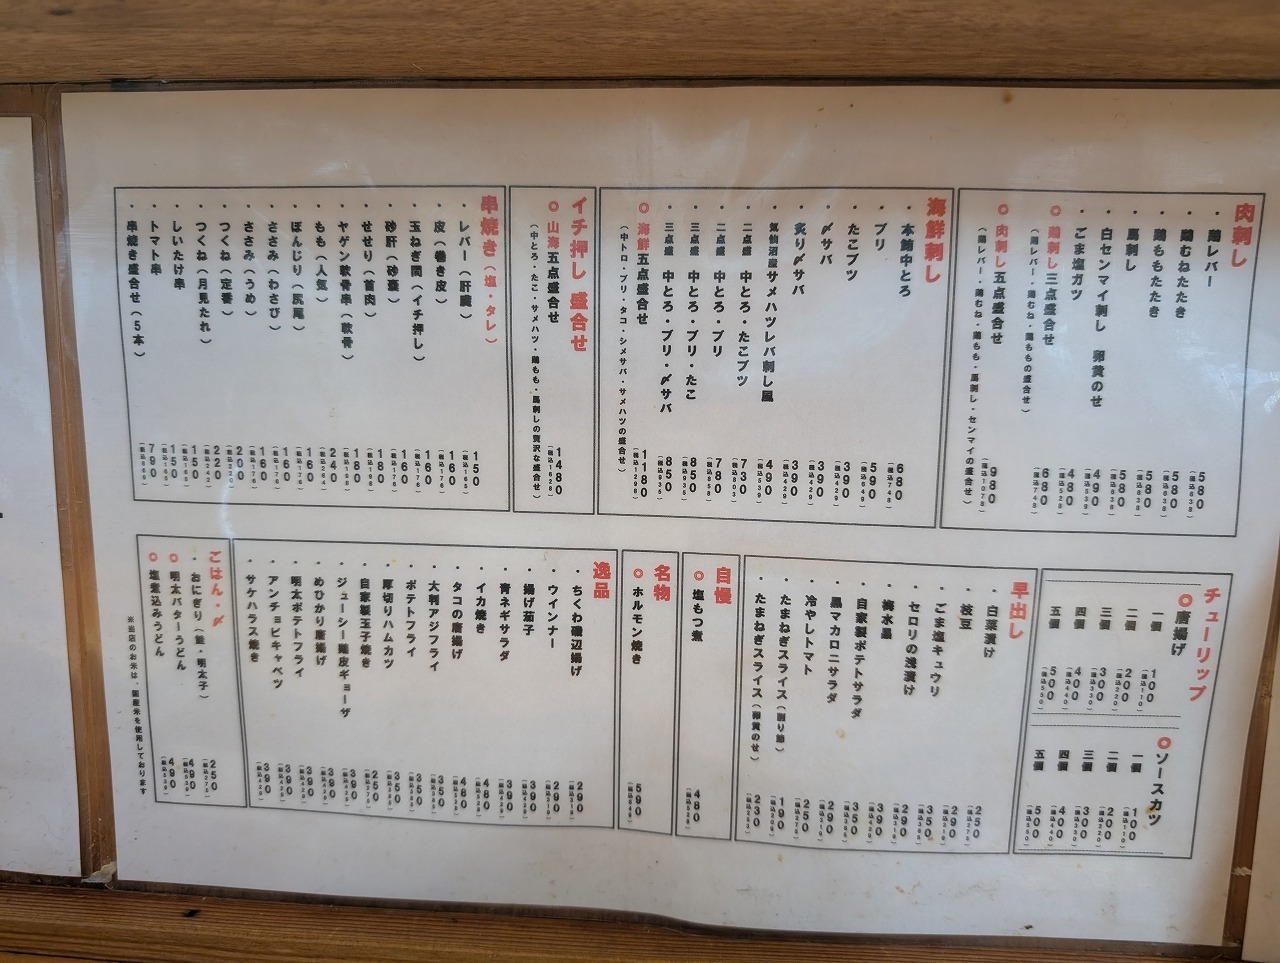 肉刺し
・鶏レバー 580 (税込638)
・鶏むねたたき 580 (税込638)
・鶏ももたたき 580 (税込638)
・馬刺し 580 (税込638)
・白センマイ刺し 卵黄のせ 490 (税込539)
・ごま塩ガツ 480 (税込528)
◎鶏刺し三点盛合せ 680 (税込748)
(鶏レバー・鶏むね・鶏ももの盛合せ)
◎肉刺し五点盛合せ 980 (税込1078)
(鶏レバー・鶏むね・鶏もも・馬刺し・センマイの盛合せ)
海鮮刺し
・本鮪中とろ 680 (税込748)
・ブリ 590 (税込649)
・たこブツ 390 (税込429)
・〆サバ 390 (税込429)
・炙り〆サバ 390 (税込429)
・気仙沼産サメハツレバ刺し風 490 (税込539)
・二点盛 中とろ・たこブツ 730 (税込803)
・二点盛 中とろ・ブリ 780 (税込858)
・三点盛 中とろ・ブリ・たこ 850 (税込935)
・三点盛 中とろ・ブリ・〆サバ 850 (税込935)
◎海鮮五点盛合せ 1180 (税込1298)
(中トロ・ブリ・タコ・シメサバ・サメハツの盛合せ)
イチ押し 盛合せ
◎山海五点盛合せ 1480 (税込1628)
(中とろ・たこ・サメハツ・鶏もも・馬刺しの贅沢な盛合せ)
串焼き(塩・タレ)
・レバー(肝臓) 150 (税込165)
・皮(巻き皮) 160 (税込176)
・玉ねぎ間(イチ押し) 160 (税込176)
・砂肝(砂嚢) 160 (税込176)
・せせり(首肉) 180 (税込198)
・ヤゲン軟骨串(軟骨) 180 (税込198)
・もも(人気) 240 (税込264)
・ぼんじり(尻尾) 160 (税込176)
・ささみ(わさび) 160 (税込176)
・ささみ(うめ) 160 (税込176)
・つくね(定番) 200 (税込220)
・つくね(月見たれ) 220 (税込242)
・しいたけ串 150 (税込165)
・トマト串 150 (税込165)
・串焼き盛合せ(5本) 790 (税込869)
チューリップ
◎唐揚げ
一個 100 (税込110)
二個 200 (税込220)
三個 300 (税込330)
四個 400 (税込440)
五個 500 (税込550)
◎ソースカツ
一個 100 (税込110)
二個 200 (税込220)
三個 300 (税込330)
四個 400 (税込440)
五個 500 (税込550)
早出し
・白菜漬け 250 (税込275)
・枝豆 290 (税込319)
・ごま塩キュウリ 350 (税込385)
・セロリの浅漬け 290 (税込319)
・梅水晶 490 (税込539)
・自家製ポテトサラダ 350 (税込385)
・黒マカロニサラダ 290 (税込319)
・冷やしトマト 250 (税込275)
・たまねぎスライス(削り節) 190 (税込209)
・たまねぎスライス(卵黄のせ) 230 (税込253)
自慢
◎塩もつ煮 480 (税込528)
名物
◎ホルモン焼き 590 (税込649)
逸品
・ちくわ磯辺揚げ 290 (税込319)
・ウインナー 290 (税込319)
・揚げ茄子 390 (税込429)
・青ネギサラダ 390 (税込429)
・イカ焼き 480 (税込528)
・タコの唐揚げ 480 (税込528)
・大判アジフライ 350 (税込385)
・ポテトフライ 350 (税込385)
・厚切りハムカツ 350 (税込385)
・自家製玉子焼き 250 (税込275)
・ジューシー鶏皮ギョーザ 390 (税込429)
・めひかり唐揚げ 390 (税込429)
・明太ポテトフライ 390 (税込429)
・アンチョビキャベツ 390 (税込429)
・サケハラス焼き 390 (税込429)
ごはん・〆
・おにぎり(鮭・明太子) 250 (税込275)
◎明太バターうどん 490 (税込539)
◎塩煮込みうどん 490 (税込539)
※当店のお米は、国産米を使用しております